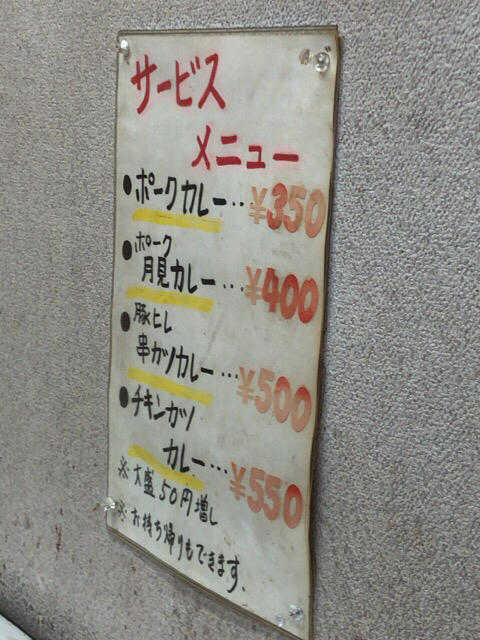 サービス
メニュー
●ポークカレー‥¥350
●ポーク
月見カレー…¥400
●豚ヒレ
串カツカレー…¥500
●チキンカツ
カレー…¥550
※大盛50円増し
※お持ち帰りもできます.